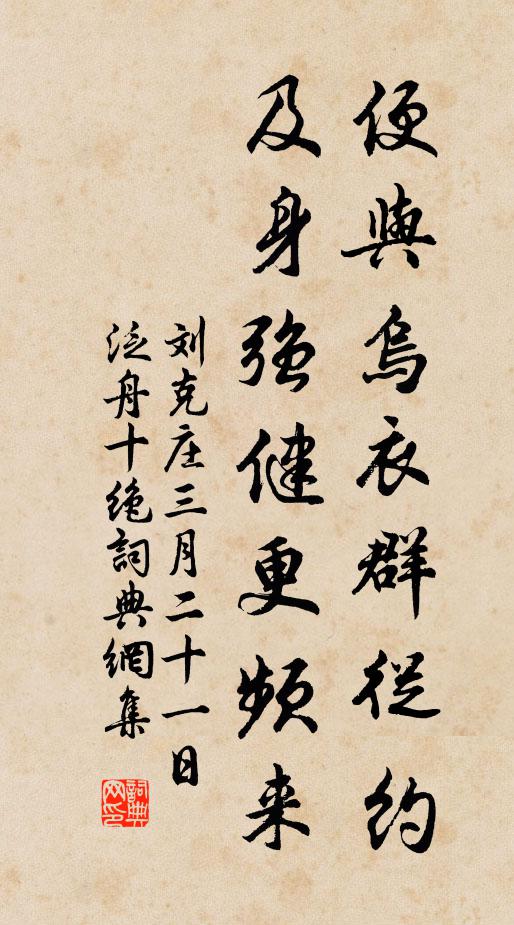 便與烏衣群從約
及身強健更頻来
刘克庄三月二十一日
泛舟十絶詞典網集
詞典网印